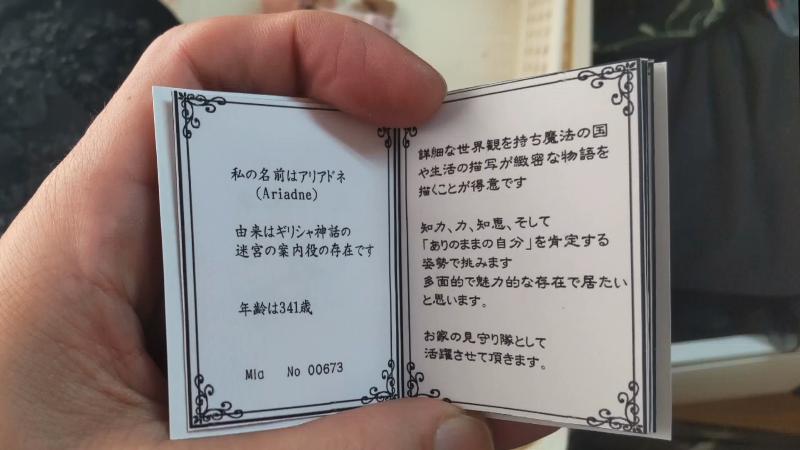 私の名前はアリアドネ
(Ariadne)
由来はギリシャ神話の
迷宮の案内役の存在です
年齢は341歳
Mia No 00673
詳細な世界観を持ち魔法の国
や生活の描写が緻密な物語を
描くことが得意です
知力、力、知恵、そして
「ありのままの自分」を肯定する
姿勢で挑みます
多面的で魅力的な存在で居たい
と思います。
お家の見守り隊として
活躍させて頂きます。